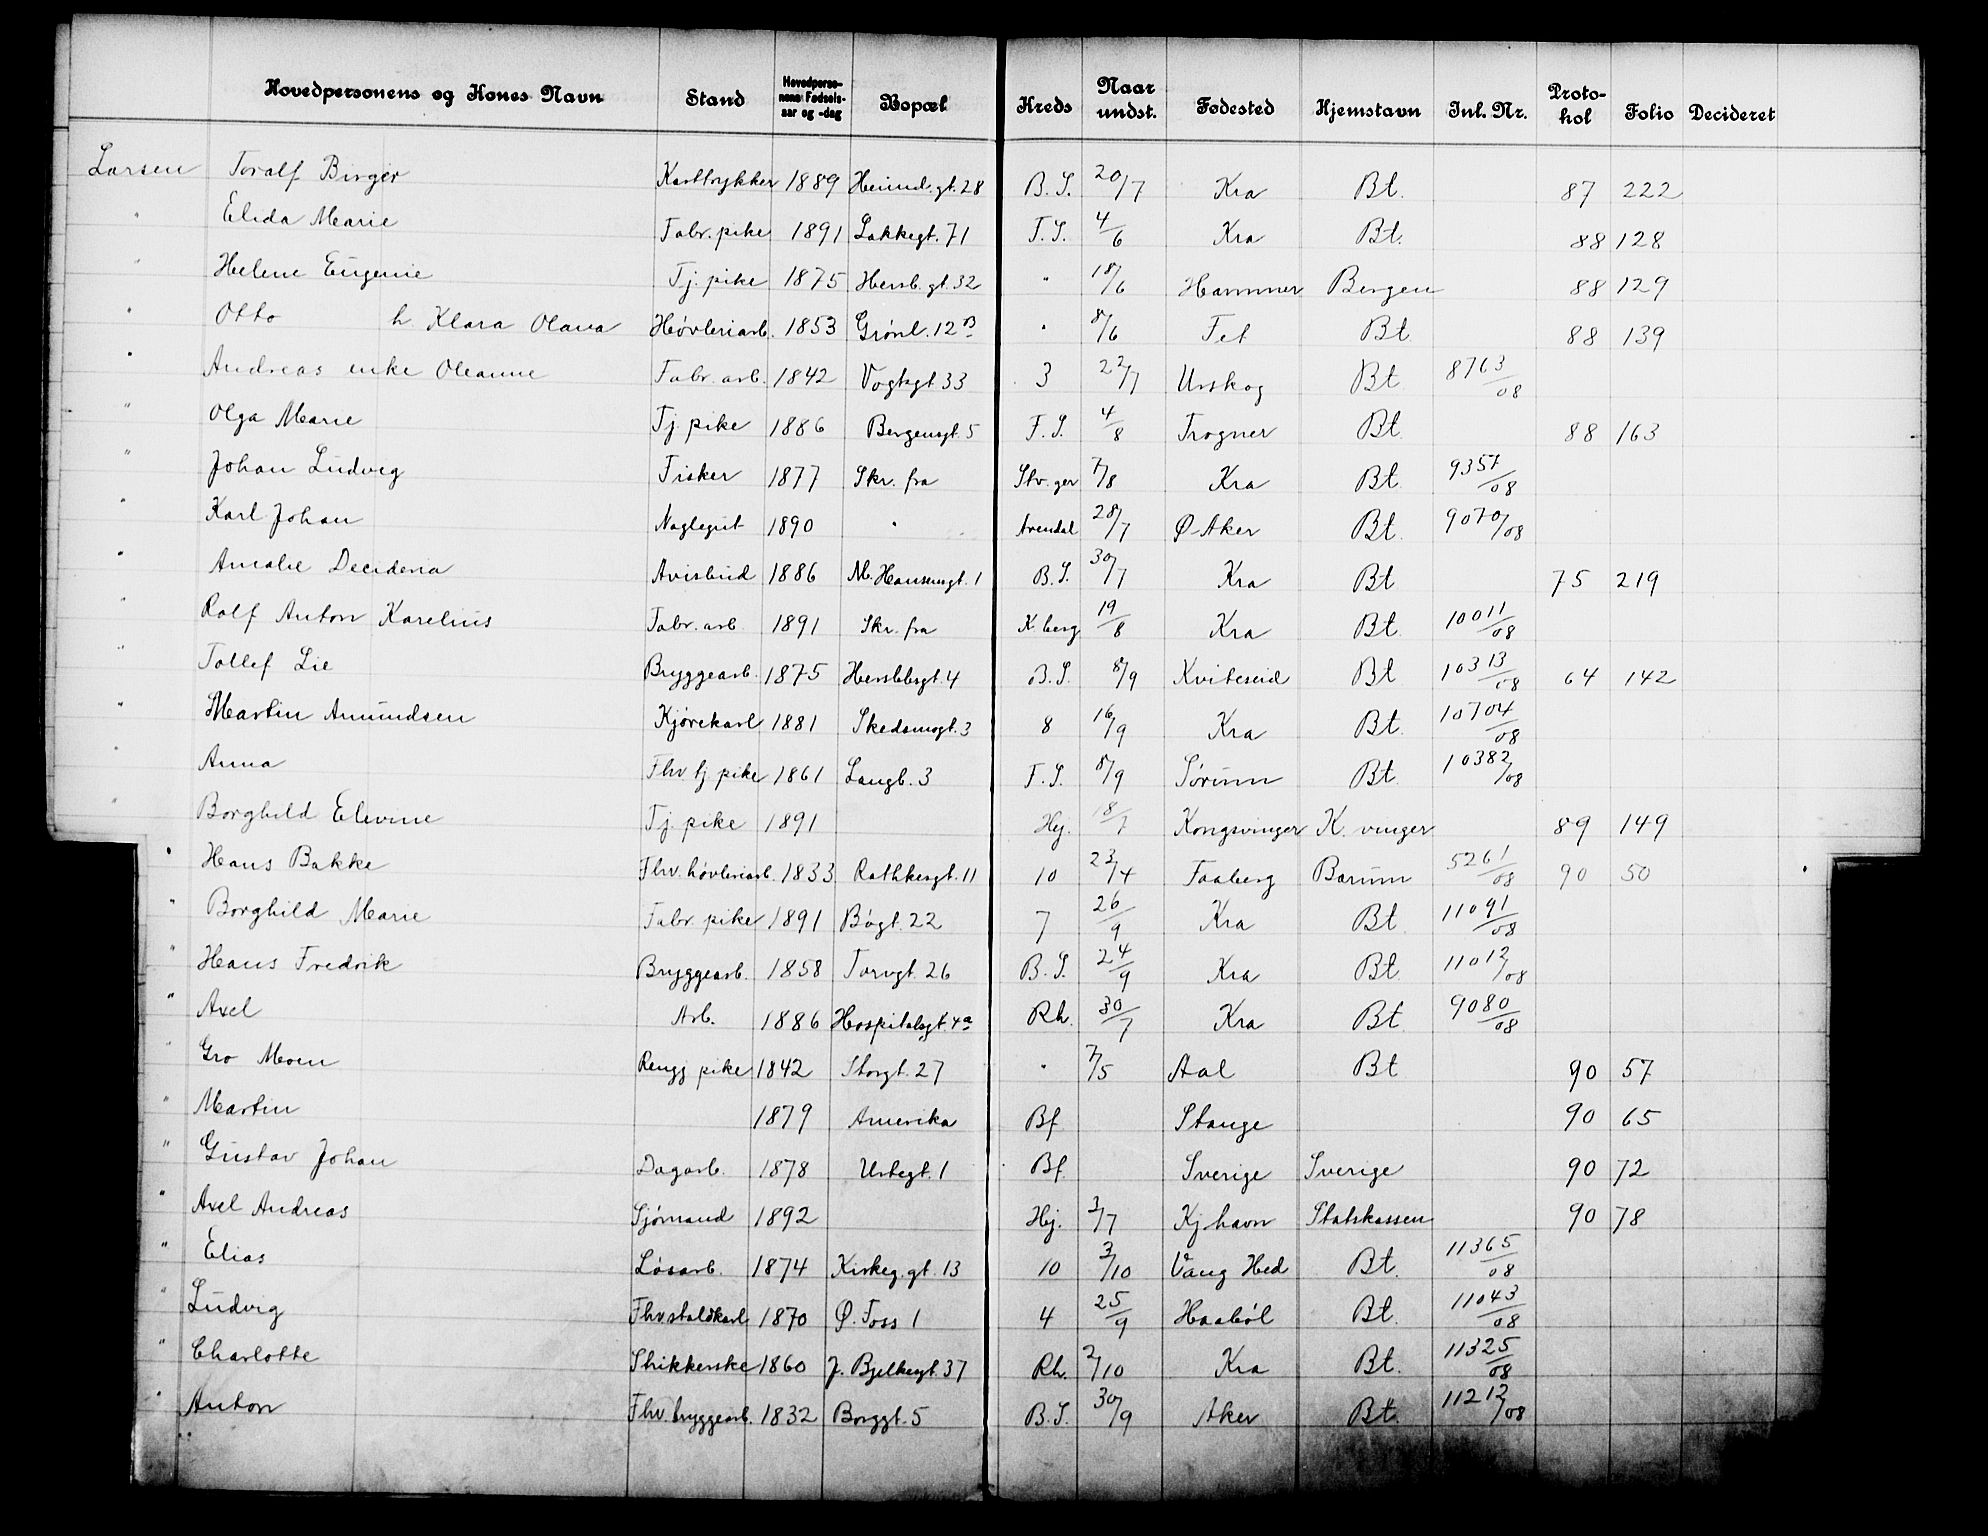 Hovedpersonens og Kones Navn Stand Hovedperso-nens Fødsels-aar og -dag Bopæl Kreds Naar undst. Fødested Hjemstavn Inl. Nr. Proto-kol Folio Decideret
Larsen Toralf Birger Karttrykker 1889 Heimd. gt. 28 B. S. 20/7 Kra Bt. 87 222
" Elida Marie Fabr. pike 1891 Lakkegt. 71 F. S. 4/6 Kra Bt. 88 128
" Helene Eugenie Tj. pike 1875 Hersb. gt. 32 " 18/6 Hammer Bergen 88 129
" Otto h Klara Olava Høvleriarb. 1853 Grønl. 12 B " 8/6 Fet Bt. 88 139
" Andreas enke Oleanne Fabr. arb. 1842 Vogtsgt 33 3 22/7 Urskog Bt 8763/08
" Olga Marie Tj. pike 1886 Bergensgt. 5 F. S. 4/8 Trogner Bt. 88 163
" Johan Ludvig Fisker 1877 Skr. fra Stv. ger 7/8 Kra Bt. 9357/08
" Karl Johan Naglegut 1890 " Arendal 28/7 Ø-Aker Bt. 9070/08
" Amalie Decideria Avisbud 1886 M. Hansensgt. 1 B. S. 30/7 Kra Bt 75 219
" Ralf Anton Karelius Fabr. arb. 1891 Skr. fra K. berg 19/8 Kra Bt. 10011/08
" Tollef Lie Bryggearb. 1875 Herslebsgt. 4 B. S. 8/9 Kviteseid Bt 10313/08 64 142
" Martin Amundsen Kjørekarl 1881 Skedsmogt. 3 8 16/9 Kra Bt. 10704/08
" Anna Fhv. tj pike 1861 Langb. 3 F. S. 8/9 Sørum Bt. 10382/08
" Borghild Elevine Tj. pike 1891 Hej. 18/7 Kongsvinger K. vinger 89 149
" Hans Bakke Fhv. høvleriarb. 1833 Rathkesgt. 11 10 23/4 Faaberg Bærum 5261/08 90 50
" Borghild Marie Fabr pike 1891 Bøgt. 22 7 26/9 Kra Bt 11091/08
" Hans Fredrik Bryggearb. 1858 Torvgt. 26 B. S. 24/9 Kra Bt. 11012/08
" Axel Arb. 1886 Hospitalsgt. 4a Rh. 30/7 Kra Bt. 9080/08
" Gro Moen Rengj pike 1842 Storgt. 27 " 7/5 Aal Bt 90 57
" Martin 1879 Amerika Bf Stange 90 65
" Gustav Johan Dagarb. 1878 Urtegt. 1 Bf. Sverige Sverige 90 72
" Axel Andreas Sjømand 1892 Hej. 2/7 Kj havn Statskassen 90 78
" Elias Løsarb. 1874 Kirkeg. gt. 13 10 3/10 Vang Hed Bt. 11365/08
" Ludvig Fhv staldkarl 1870 Ø. Foss 1 4 25/9 Haabøl Bt. 11043/08
" Charlotte Strikkerske 1860 J. Bjelkesgt. 37 Rh. 2/10 Kra Bt. 11325/08
" Anton Fhv. bryggearb. 1832 Borggt. 5 B. S. 30/9 Aker Bt. 11212/08